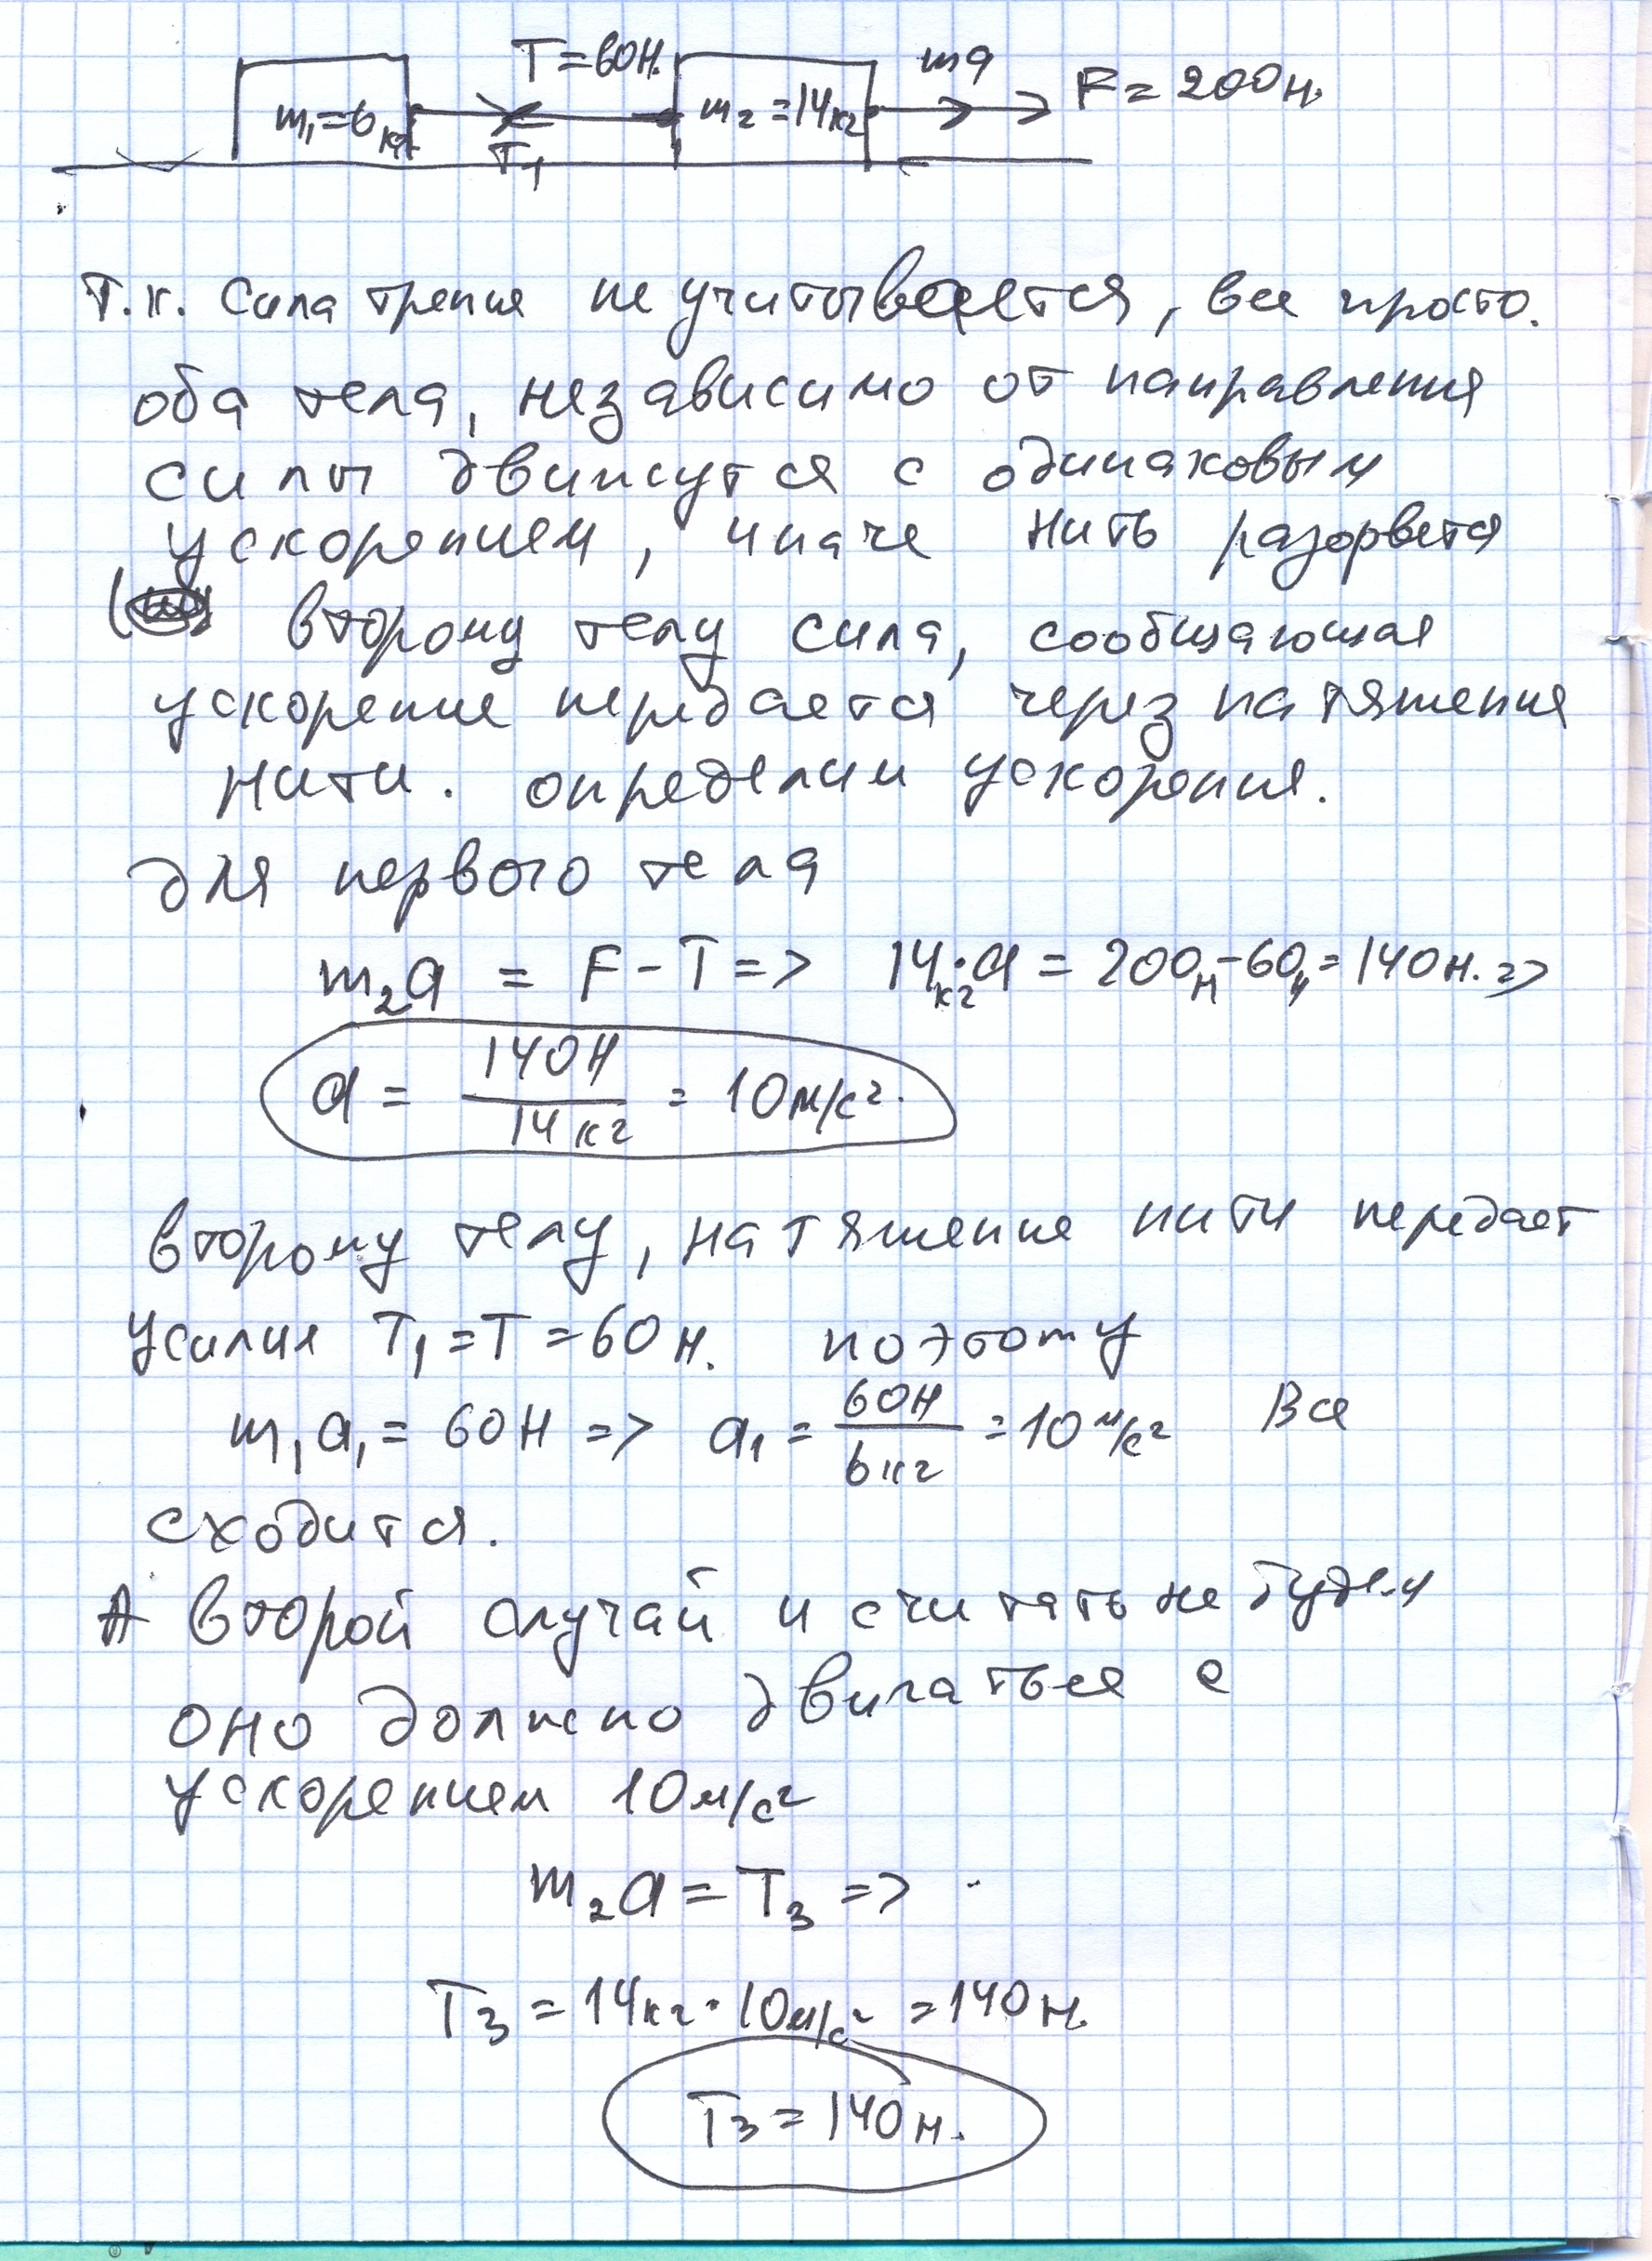 T = 60Н.
ma
F = 200н.
m₁=6кг
m₂=14кг
T₁
Т.к. Сила трения не учитывается, все просто.
оба тела, независимо от направления
силы движутся с одинаковым
ускорением, иначе нить разорвется
второму телу сила, сообщающая
ускорение передается через натяжения
нити. определим ускорения.
для первого тела
m₂a = F - T => 14кг·a = 200н-60н=140н. =>
a = 140Н/14кг = 10м/с².
второму телу, натяжение нити передает
усилия T₁=T=60н. поэтому
m₁a₁= 60Н => a₁ = 60Н/6кг =10м/с² Все
сходится.
А второй случай и считать не будем
оно должно двигаться с
ускорением 10м/с²
m₂a = T₃ =>
T₃ = 14кг·10м/с² =140н.
T₃ = 140н.